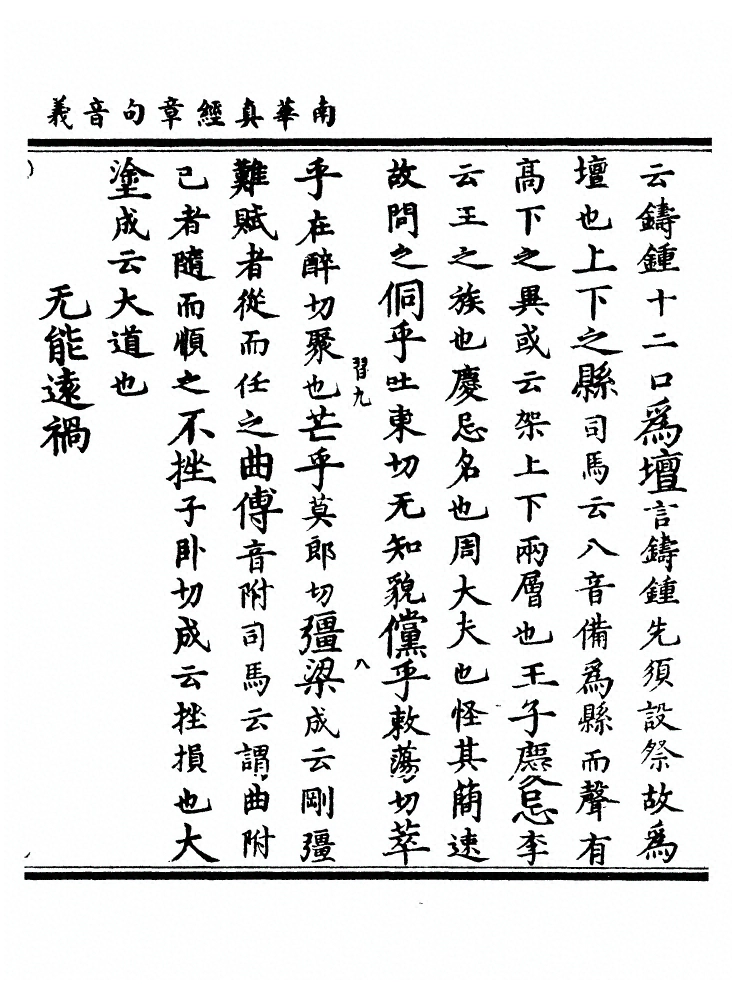 南華真經章句音義
云鑄鍾十二口為壇言鑄鍾先須設祭故為
壇也上下之縣司馬云八音備為縣而聲有
高下之異或云架上下兩層也王子慶忌李
云王之族也慶忌名也周大夫也怪其簡速
故問之侗乎吐東切无知貌儻乎敕蕩切萃
習九
八
乎在醉切聚也芒乎莫郎切彊梁成云剛彊
難賦者從而任之曲傅音附司馬云謂曲附
己者隨而順之不挫子卧切成云挫損也大
塗成云大道也
无能遠禍